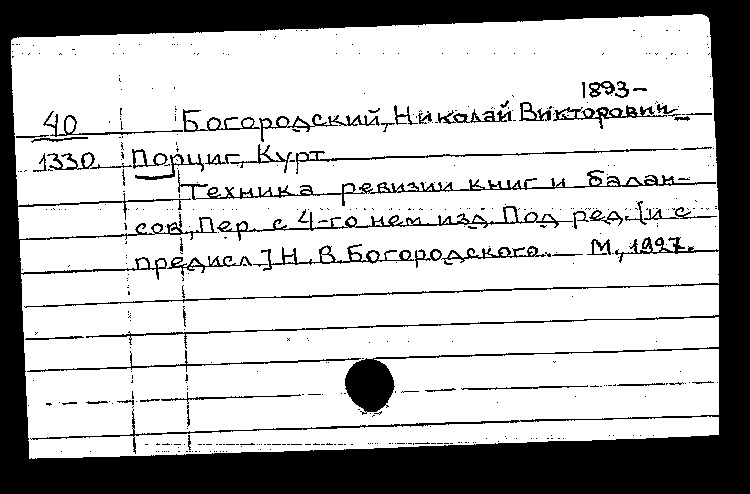 1893-
40 Богородский, Николай Викторович
1330. Порциг, Курт
Техника ревизии книг и балан-
сов, Пер. с 4-го нем изд. Под ред. [и с
предисл.] Н. В. Богородского. М., 1927.